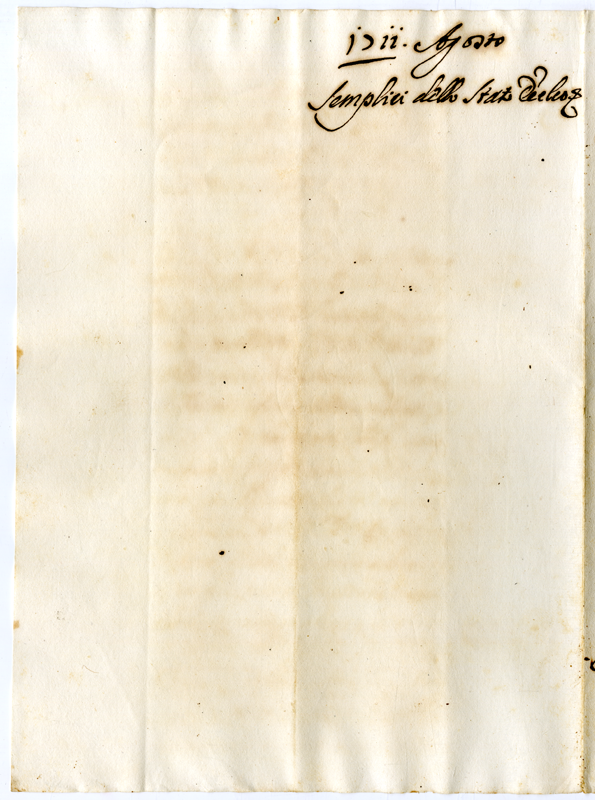 1711. Agosto
Semplici dello Stato